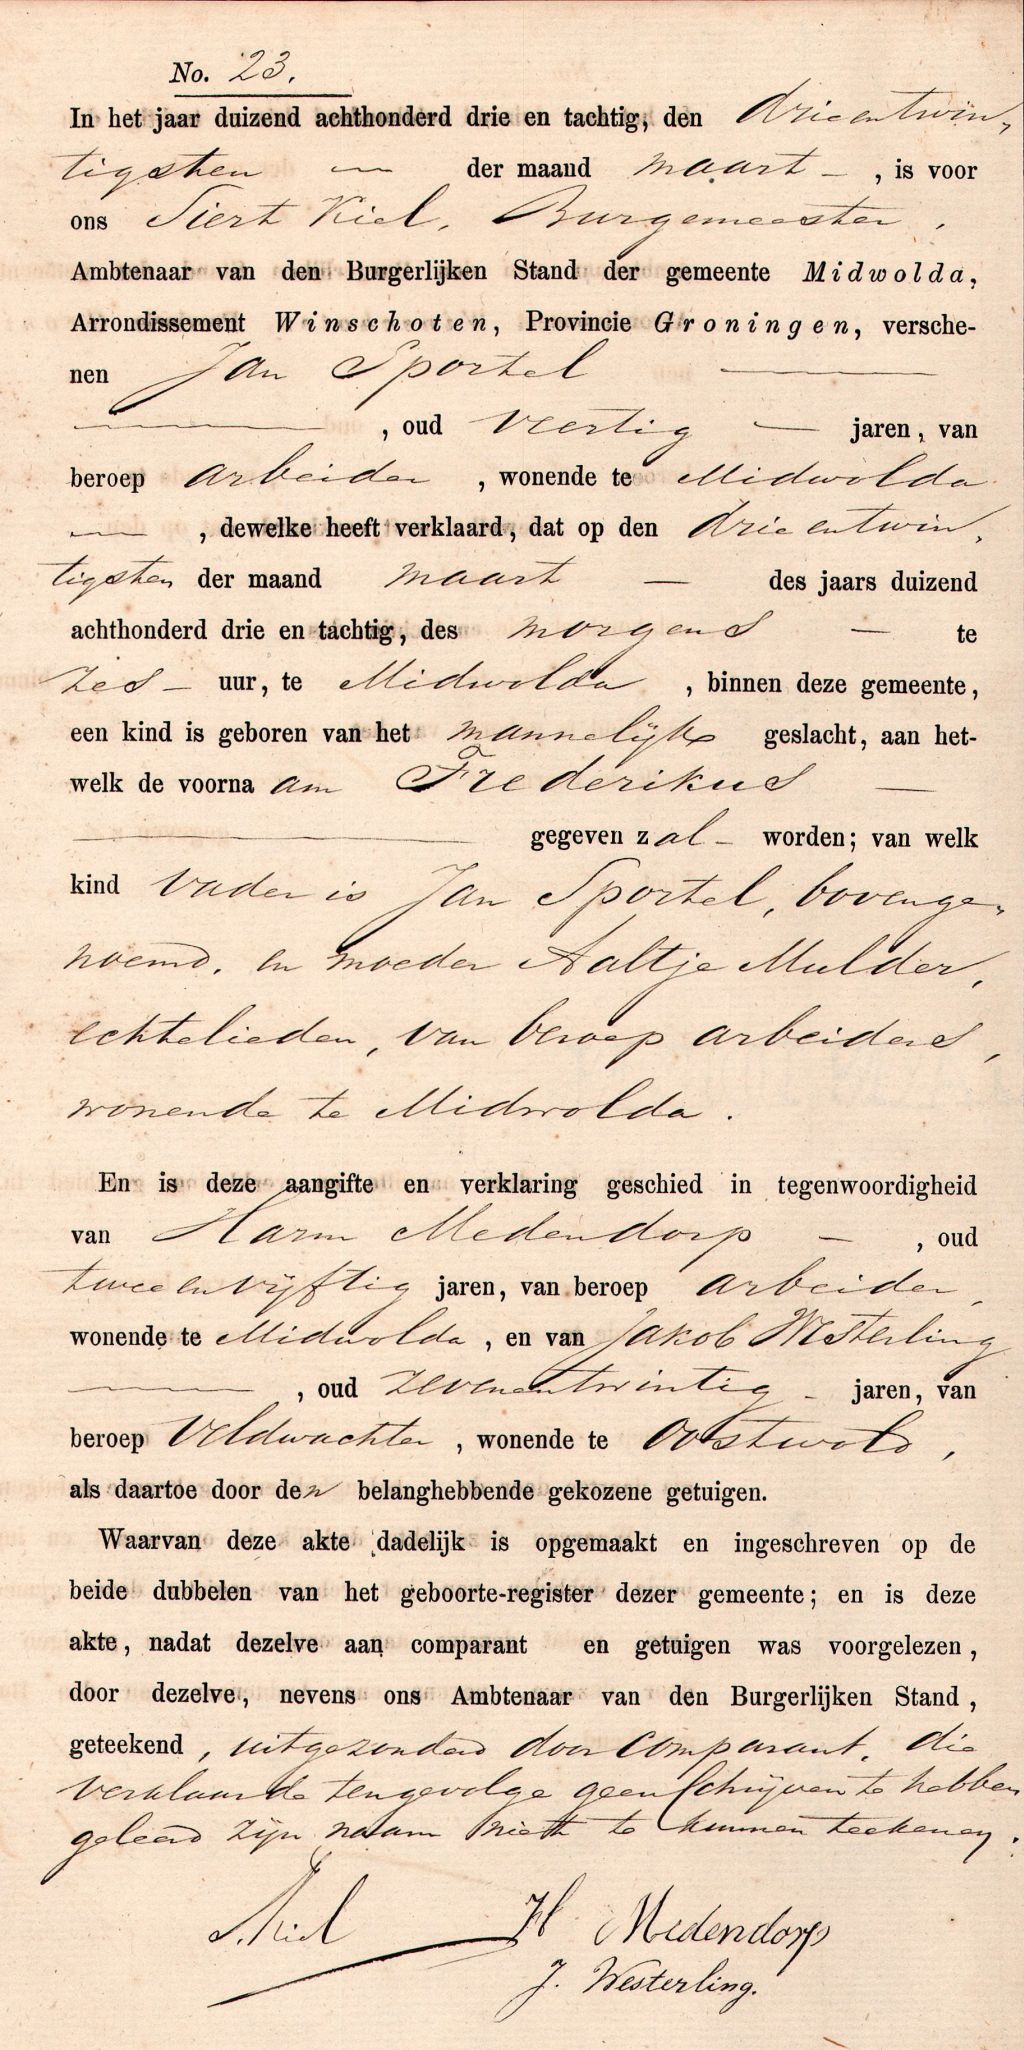 No. 23.
In het jaar duizend achthonderd drie en tachtig, den drieentwin-
tigsten — der maand maart —, is voor
ons Siert Kiel, Burgemeester,
Ambtenaar van den Burgerlijken Stand der gemeente Midwolda,
Arrondissement Winschoten, Provincie Groningen, versche-
nen Jan Sportel —
—, oud veertig — jaren, van
beroep arbeider, wonende te Midwolda
—, dewelke heeft verklaard, dat op den drieentwin-
tigsten der maand maart — des jaars duizend
achthonderd drie en tachtig, des morgens — te
zes — uur, te Midwolda, binnen deze gemeente,
een kind is geboren van het mannelijk geslacht, aan het-
welk de voornaam Frederikus —
— gegeven zal — worden; van welk
kind vader is Jan Sportel, bovenge-
noemd, en moeder Aaltje Mulder,
echtelieden, van beroep arbeiders,
wonende te Midwolda.
En is deze aangifte en verklaring geschied in tegenwoordigheid
van Harm Medendorp —, oud
tweeenvijftig jaren, van beroep arbeider,
wonende te Midwolda, en van Jakob Westerling
—, oud zevenentwintig — jaren, van
beroep veldwachter, wonende te Oostwold,
als daartoe door den belanghebbende gekozene getuigen.
Waarvan deze akte dadelijk is opgemaakt en ingeschreven op de
beide dubbelen van het geboorte-register dezer gemeente; en is deze
akte, nadat dezelve aan comparant en getuigen was voorgelezen,
door dezelve, nevens ons Ambtenaar van den Burgerlijken Stand,
geteekend, uitgezonderd door comparant, die
verklaarde tengevolge geen schrijven te hebben
geleerd zijn naam niet te kunnen teekenen.
S. Kiel H Medendorp
J. Westerling.